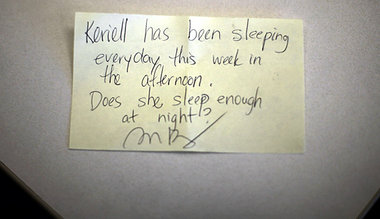 Keriell has been sleeping
everyday this week in
the afternoon.
Does she sleep enough
at night?